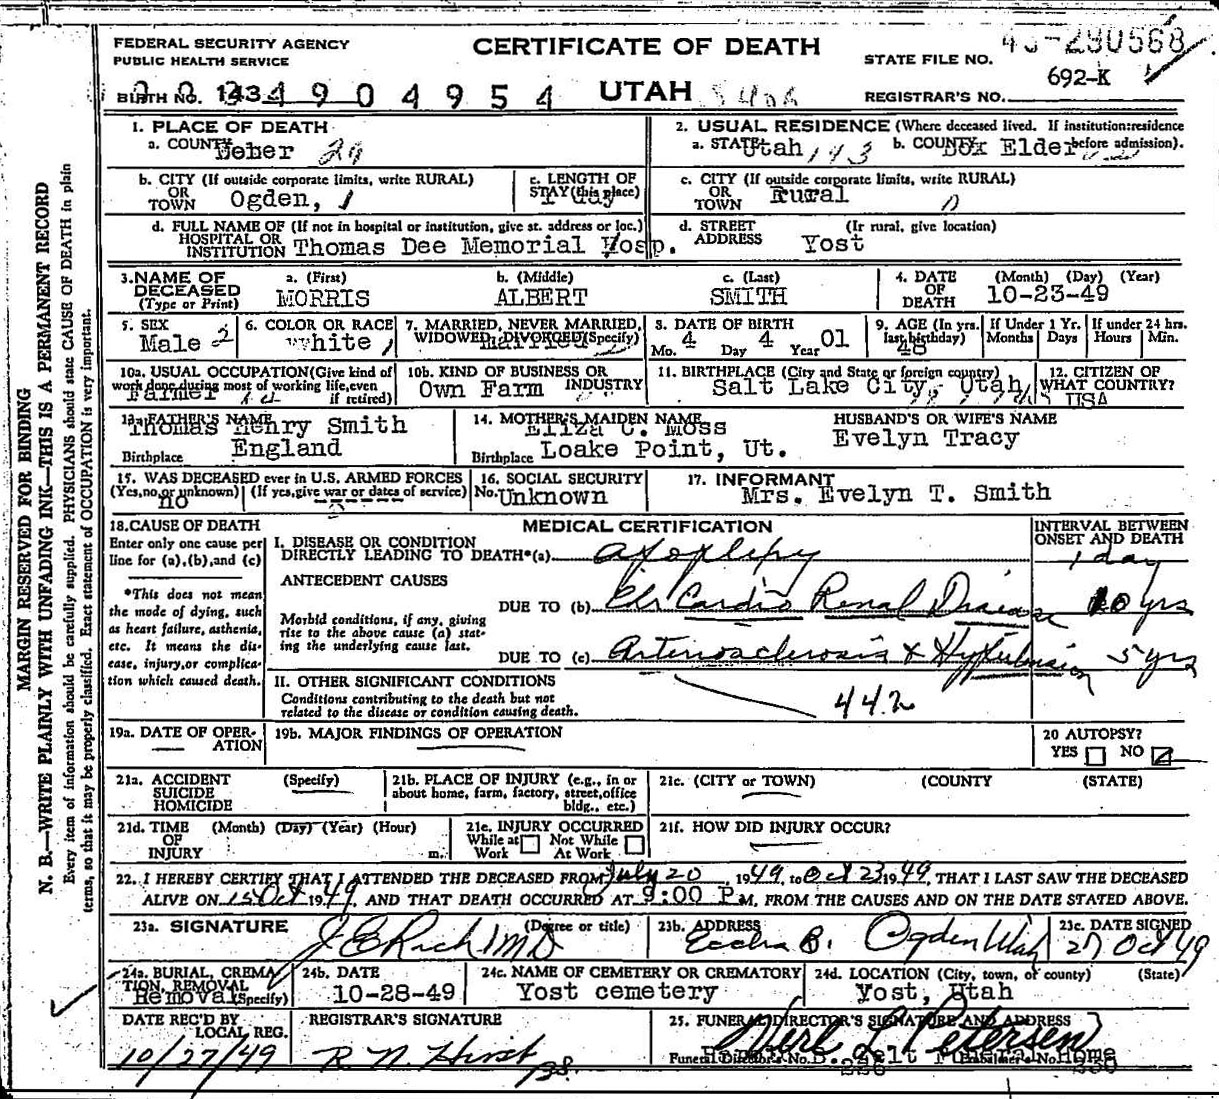 CERTIFICATE OF DEATH
FEDERAL SECURITY AGENCY
PUBLIC HEALTH SERVICE
STATE FILE NO. 290568
BIRTH NO. 143 4904954 UTAH
REGISTRAR'S NO. 692-K
1. PLACE OF DEATH
a. COUNTY Weber 29
2. USUAL RESIDENCE (Where deceased lived. If institution:residence before admission).
a. STATE Utah b. COUNTY Box Elder
b. CITY (If outside corporate limits, write RURAL) OR TOWN Ogden, 1
c. LENGTH OF STAY (this place) 1 day
c. CITY (If outside corporate limits, write RURAL) OR TOWN Rural
d. FULL NAME OF (If not in hospital or institution, give st. address or loc.) HOSPITAL OR INSTITUTION Thomas Dee Memorial Hosp.
d. STREET ADDRESS (Ir rural, give location) Yost
3. NAME OF DECEASED (Type or Print)
a. (First) MORRIS
b. (Middle) ALBERT
c. (Last) SMITH
4. DATE OF DEATH (Month) (Day) (Year) 10-23-49
5. SEX Male 2
6. COLOR OR RACE White 1
7. MARRIED, NEVER MARRIED, WIDOWED, DIVORCED(Specify) married
8. DATE OF BIRTH Mo. 4 Day 4 Year 01
9. AGE (In yrs. last birthday) 48
If Under 1 Yr. Months Days
If under 24 hrs. Hours Min.
10a. USUAL OCCUPATION(Give kind of work done during most of working life,even if retired) Farmer
10b. KIND OF BUSINESS OR INDUSTRY Own Farm
11. BIRTHPLACE (City and State or foreign country) Salt Lake City, Utah
12. CITIZEN OF WHAT COUNTRY? USA
13a. FATHER'S NAME Thomas Henry Smith
Birthplace England
14. MOTHER'S MAIDEN NAME Eliza C. Moss
Birthplace Loake Point, Ut.
HUSBAND'S OR WIFE'S NAME
Evelyn Tracy
15. WAS DECEASED ever in U.S. ARMED FORCES
(Yes,no,or unknown) no (If yes,give war or dates of service)
16. SOCIAL SECURITY No. Unknown
17. INFORMANT
Mrs. Evelyn T. Smith
18. CAUSE OF DEATH
Enter only one cause per line for (a),(b),and (c)
*This does not mean the mode of dying, such as heart failure, asthenia, etc. It means the disease, injury,or complication which caused death.
MEDICAL CERTIFICATION
INTERVAL BETWEEN ONSET AND DEATH
I. DISEASE OR CONDITION DIRECTLY LEADING TO DEATH*(a) apoplexy 1 day
ANTECEDENT CAUSES
Morbid conditions, if any, giving rise to the above cause (a) stating the underlying cause last.
DUE TO (b) Cardio Renal Disease 10 yrs
DUE TO (c) Arteriosclerosis & Hypertension 5 yrs
II. OTHER SIGNIFICANT CONDITIONS
Conditions contributing to the death but not related to the disease or condition causing death.
442
19a. DATE OF OPERATION
19b. MAJOR FINDINGS OF OPERATION
20 AUTOPSY?
YES NO
21a. ACCIDENT SUICIDE HOMICIDE (Specify)
21b. PLACE OF INJURY (e.g., in or about home, farm, factory, street,office bldg., etc.)
21c. (CITY or TOWN) (COUNTY) (STATE)
21d. TIME OF INJURY (Month) (Day) (Year) (Hour) m.
21e. INJURY OCCURRED
While at Work Not While At Work
21f. HOW DID INJURY OCCUR?
22. I HEREBY CERTIFY THAT I ATTENDED THE DECEASED FROM July 20, 1949, to Oct 23 1949, THAT I LAST SAW THE DECEASED
ALIVE ON 15 Oct 1949, AND THAT DEATH OCCURRED AT 9:00 P.M, FROM THE CAUSES AND ON THE DATE STATED ABOVE.
23a. SIGNATURE (Degree or title) J E Rich MD
23b. ADDRESS Eccles B. Ogden Utah
23c. DATE SIGNED 27 Oct 49
24a. BURIAL, CREMATION, REMOVAL (Specify) Removal
24b. DATE 10-28-49
24c. NAME OF CEMETERY OR CREMATORY Yost cemetery
24d. LOCATION (City, town, or county) (State) Yost, Utah
DATE REC'D BY LOCAL REG. 10/27/49
REGISTRAR'S SIGNATURE R N Hirst
25. FUNERAL DIRECTOR'S SIGNATURE AND ADDRESS
Petersen
Funeral Home
Funeral Director's No. Embalmer's No.
MARGIN RESERVED FOR BINDING
N. B.—WRITE PLAINLY WITH UNFADING INK—THIS IS A PERMANENT RECORD
Every item of information should be carefully supplied. PHYSICIANS should state CAUSE OF DEATH in plain
terms, so that it may be properly classified. Exact statement of OCCUPATION is very important.